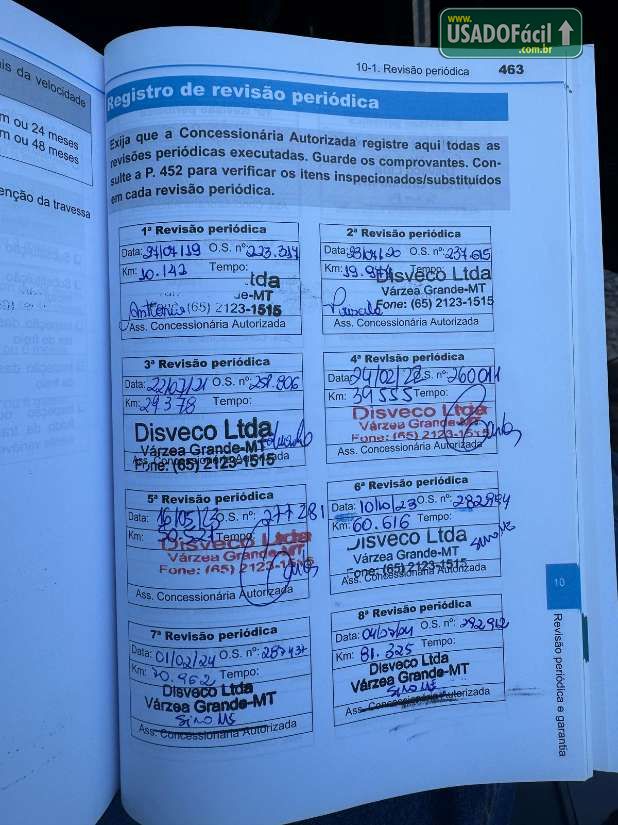 www.
USADOFácil
.com.br
is da velocidade
m ou 24 meses
m ou 48 meses
enção da travessa
10-1. Revisão periódica 463
Registro de revisão periódica
Exija que a Concessionária Autorizada registre aqui todas as
revisões periódicas executadas. Guarde os comprovantes. Con-
sulte a P. 452 para verificar os itens inspecionados/substituídos
em cada revisão periódica.
1ª Revisão periódica
Data: O.S. nº: 223.317
Km: 10.142 Tempo:
ltda
de-MT
(65) 2123-1515
Ass. Concessionária Autorizada
2ª Revisão periódica
Data: O.S. nº: 237.615
Km: Tempo:
Disveco Ltda
Várzea Grande-MT
Fone: (65) 2123-1515
Priscila
Ass. Concessionária Autorizada
3ª Revisão periódica
Data: 22/07/21 O.S. nº: 251.906
Km: 29378 Tempo:
Disveco Ltda
Várzea Grande-MT
Ass. Concessionária Autorizada
Fone: (65) 2123-1515
4ª Revisão periódica
Data: 24/02/22 O.S. nº: 260011
Km: 39555 Tempo:
Disveco Ltda
Várzea Grande-MT
Fone: (65) 2123-1515
Ass. Concessionária Autorizada
5ª Revisão periódica
Data: 16/05/23 O.S. nº: 277281
Km: Tempo:
Disveco Ltda
Várzea Grande-MT
Fone: (65) 2123-1515
Ass. Concessionária Autorizada
6ª Revisão periódica
Data: 10/10/23 O.S. nº: 282.994
Km: 60.616 Tempo:
Disveco Ltda
Várzea Grande-MT
Fone: (65) 2123-1515
Ass. Concessionária Autorizada
7ª Revisão periódica
Data: 01/02/24 O.S. nº: 287437
Km: 70.962 Tempo:
Disveco Ltda
Várzea Grande-MT
Ass. Concessionária Autorizada
8ª Revisão periódica
Data: 04/07/24 O.S. nº: 292.912
Km: 81.325 Tempo:
Disveco Ltda
Várzea Grande-MT
Ass. Concessionária Autorizada
10
Revisão periódica e garantia